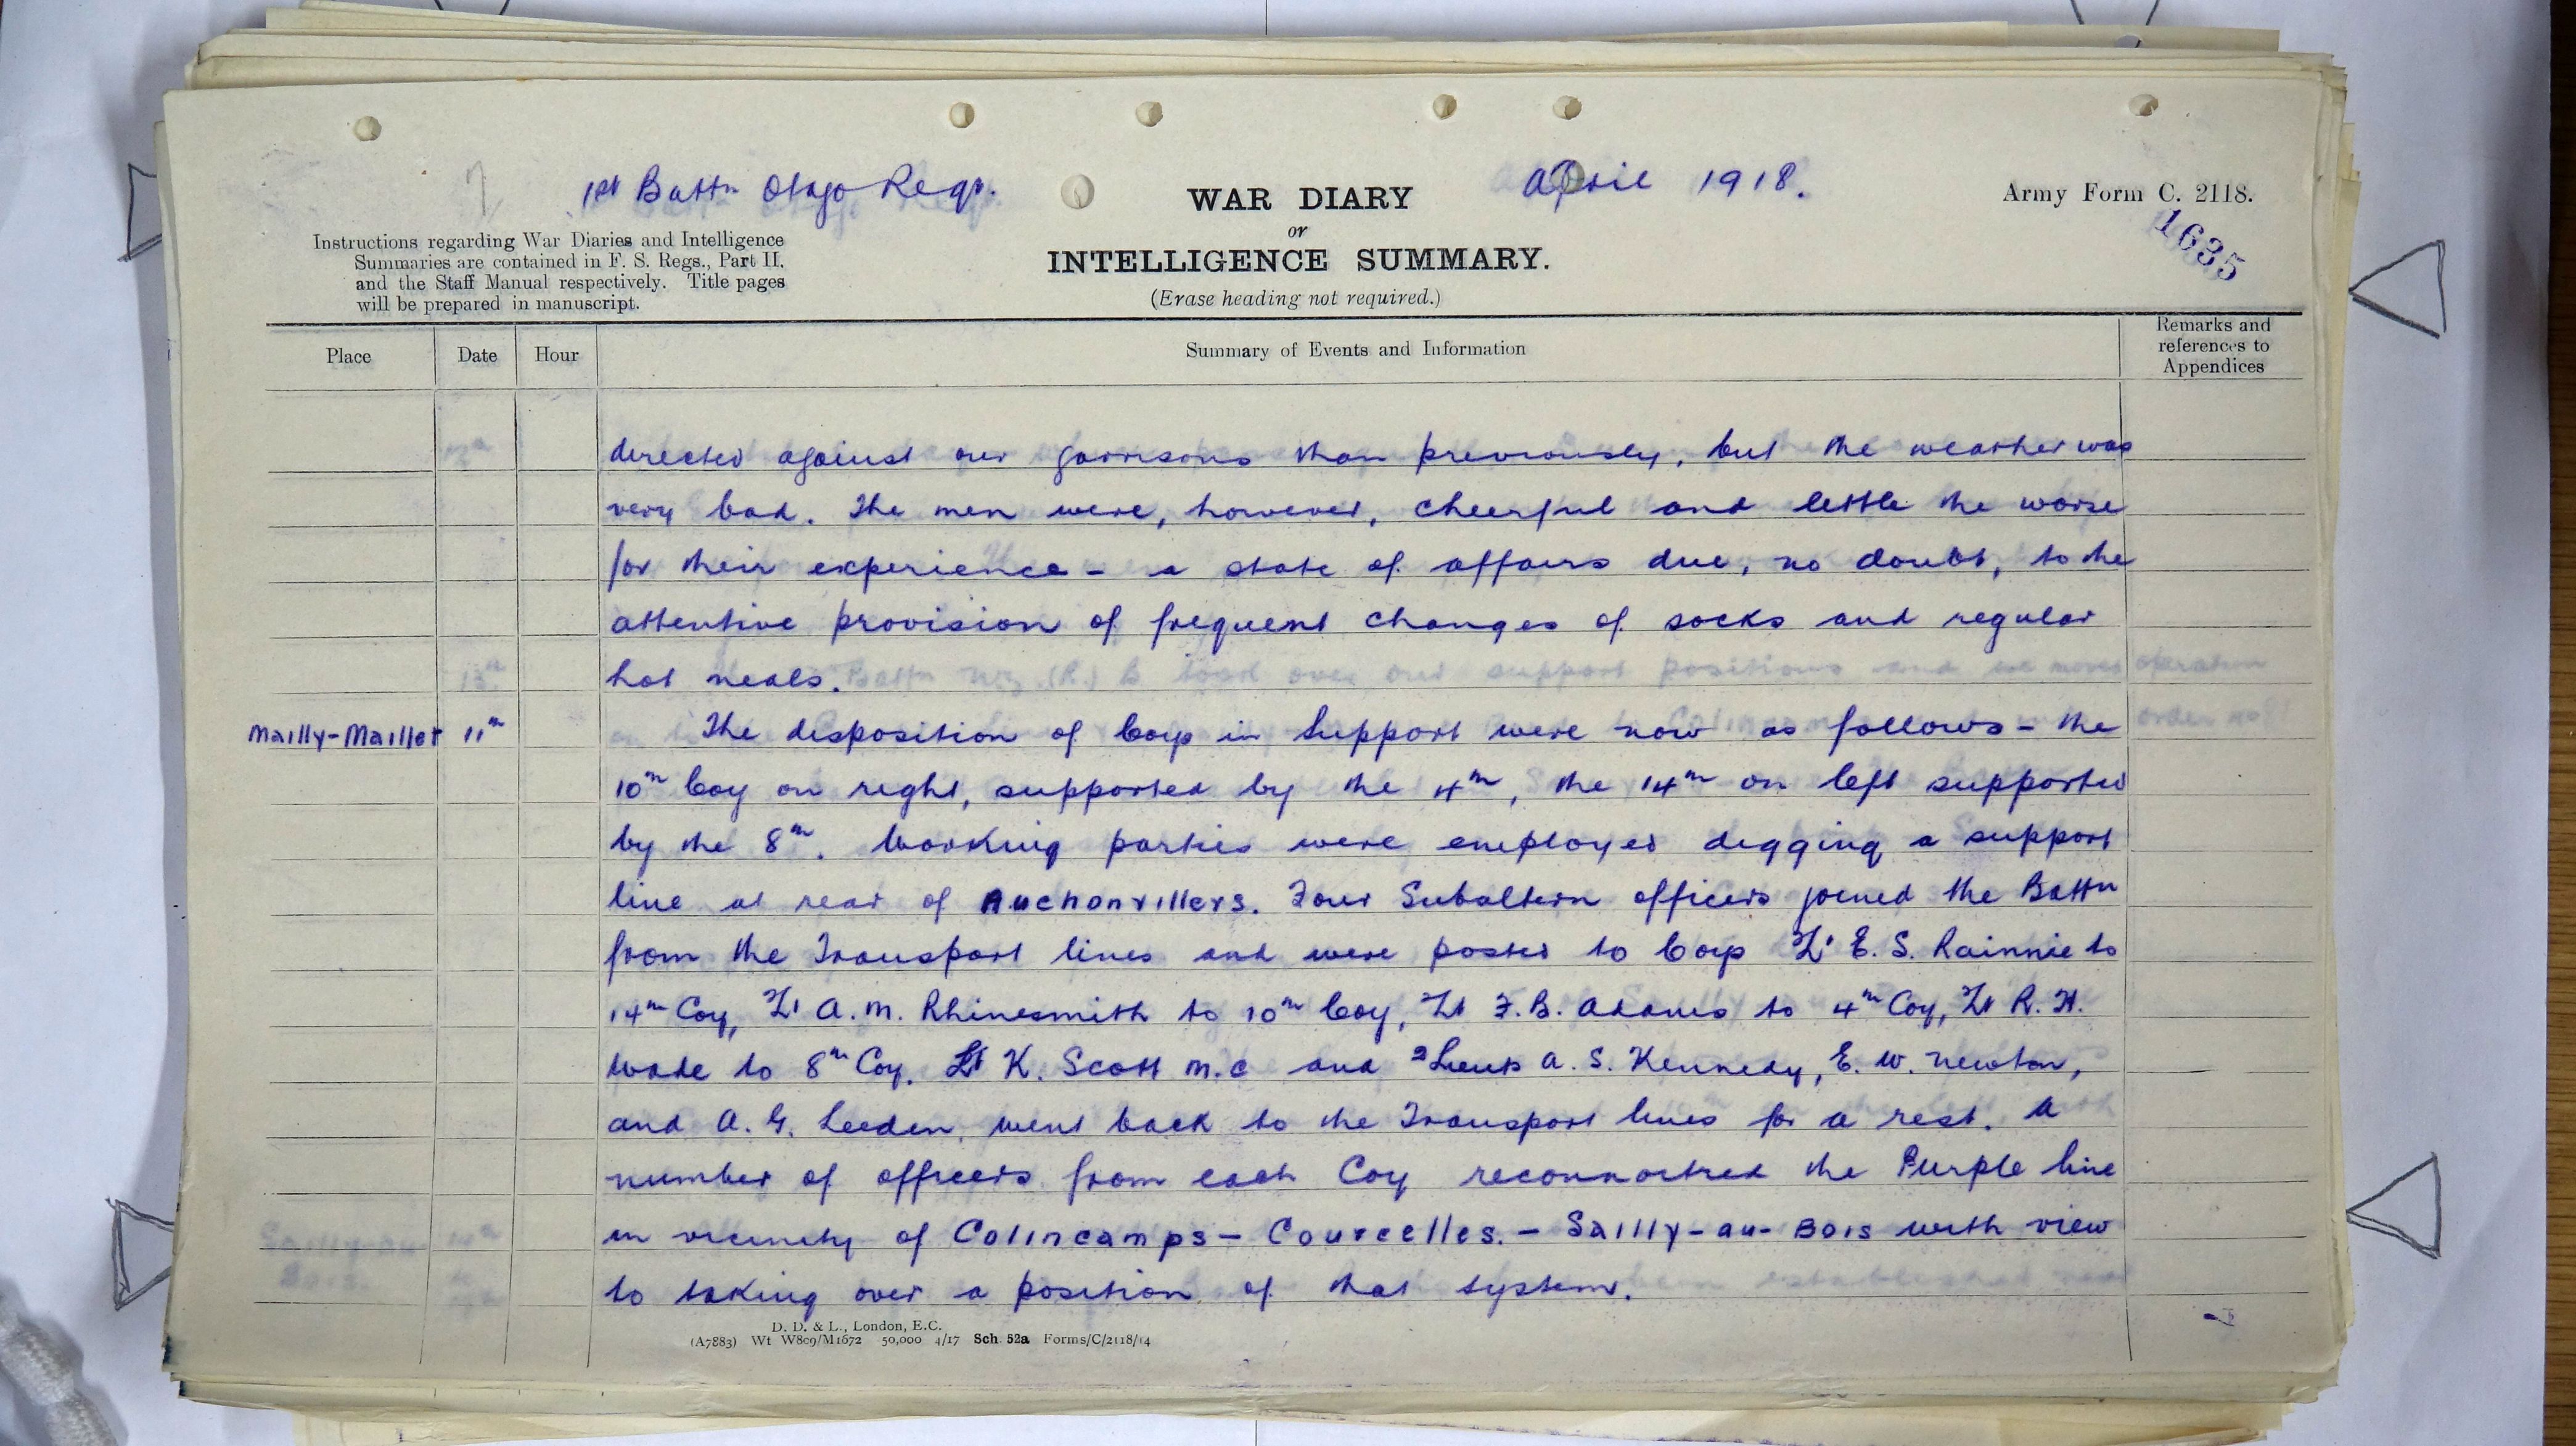 1st Battn Otago Regt.
April 1918.
WAR DIARY
or
INTELLIGENCE SUMMARY.
(Erase heading not required.)
Army Form C. 2118.
1635
Instructions regarding War Diaries and Intelligence
Summaries are contained in F. S. Regs., Part II.
and the Staff Manual respectively. Title pages
will be prepared in manuscript.
Place Date Hour Summary of Events and Information Remarks and
references to
Appendices
directed against our garrisons than previously, but the weather was
very bad. The men were, however, cheerful and little the worse
for their experience - a state of affairs due, no doubt, to the
attentive provision of frequent changes of socks and regular
hot meals.
Mailly-Maillet 11th The disposition of Coys in Support were now as follows - the
10th Coy on right, supported by the 4th, the 14th on left supported
by the 8th. Working parties were employed digging a support
line at rear of Auchonvillers. Four Subaltern officers joined the Battn
from the Transport lines and were posted to Coys Lt E. S. Rainnie to
14th Coy, Lt A. M. Rhinesmith to 10th Coy, Lt F. B. Adams to 4th Coy, Lt R. H.
Wade to 8th Coy. Lt K. Scott M.C and 2Lieuts A. S. Kennedy, E. W. Newton,
and A. G. Leeden, went back to the Transport lines for a rest. A
number of officers from each Coy reconnoitred the Purple line
in vicinity of Colincamps - Courcelles. - Sailly-au-Bois with view
to taking over a position of that system.
D. D. & L., London, E.C.
(A7883) Wt W809/M1672 50,000 4/17 Sch. 52a Forms/C/2118/14